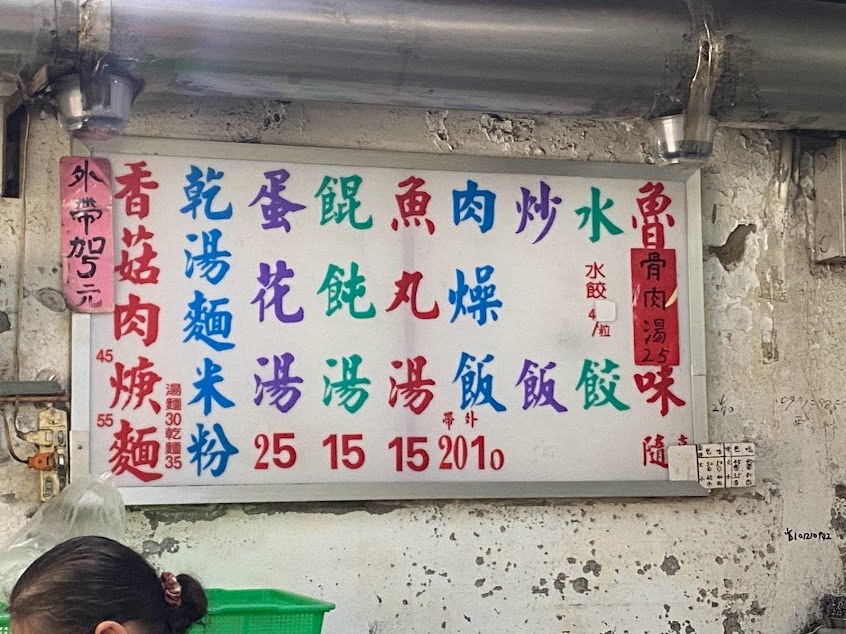 外帶加5元
香菇肉焿麵
45
55
乾湯麵米粉
湯麵30乾麵35
蛋花湯25
餛飩湯15
魚丸湯15
肉燥飯
帶外
2010
炒飯
水餃
水餃
4/粒
魯味
骨肉湯25
隨